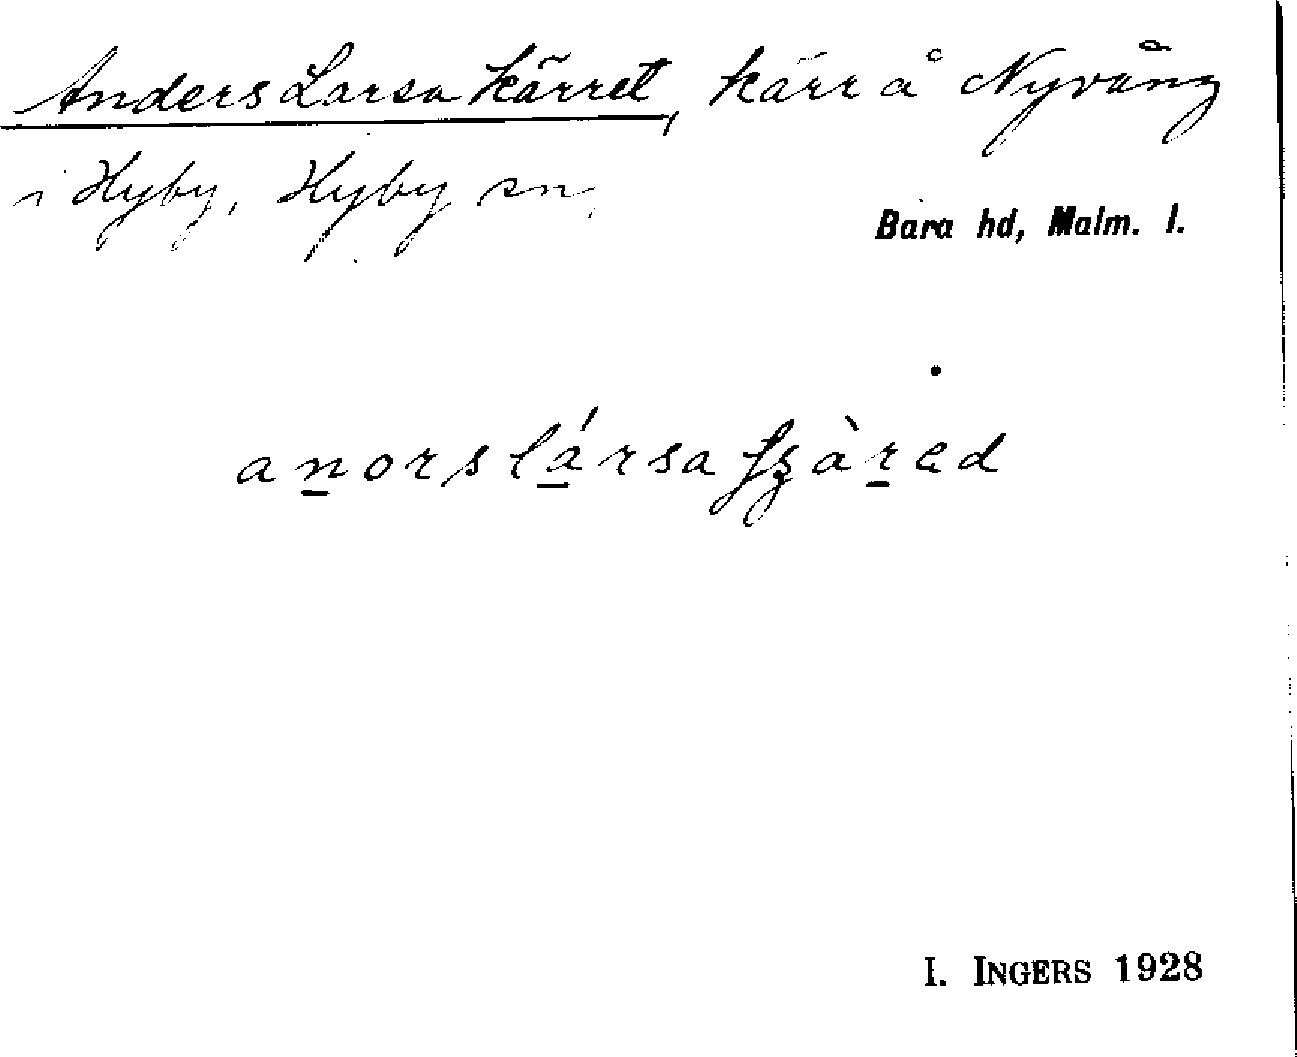 Anders Larsa kärret, kärr å Nyvång
i Hyby, Hyby sn,
Bara hd, Malm. l.
I. INGERS 1928